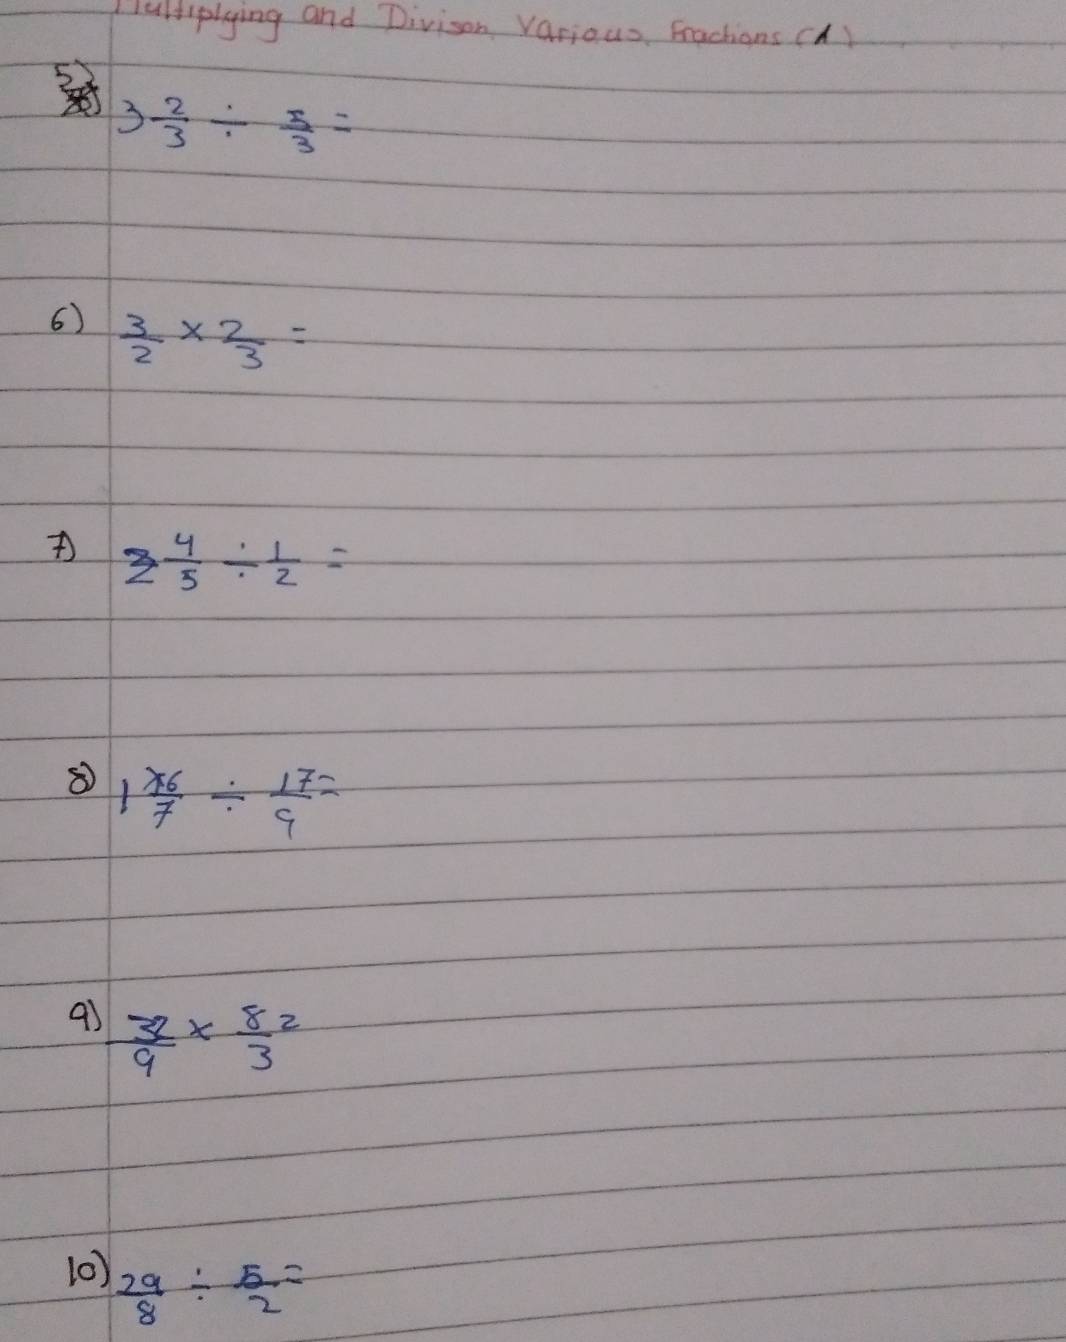 Multiplying and Divison Various Fractions (A)
5) 3 2/3 ÷ 5/3 =
6) 3/2 × 2/3 =
7) 4/5 ÷ 1/2 =
8) 1 6/7 ÷ 17/9 =
9) /9 × 8/3 =
10) 29/8 ÷ 5/2 =